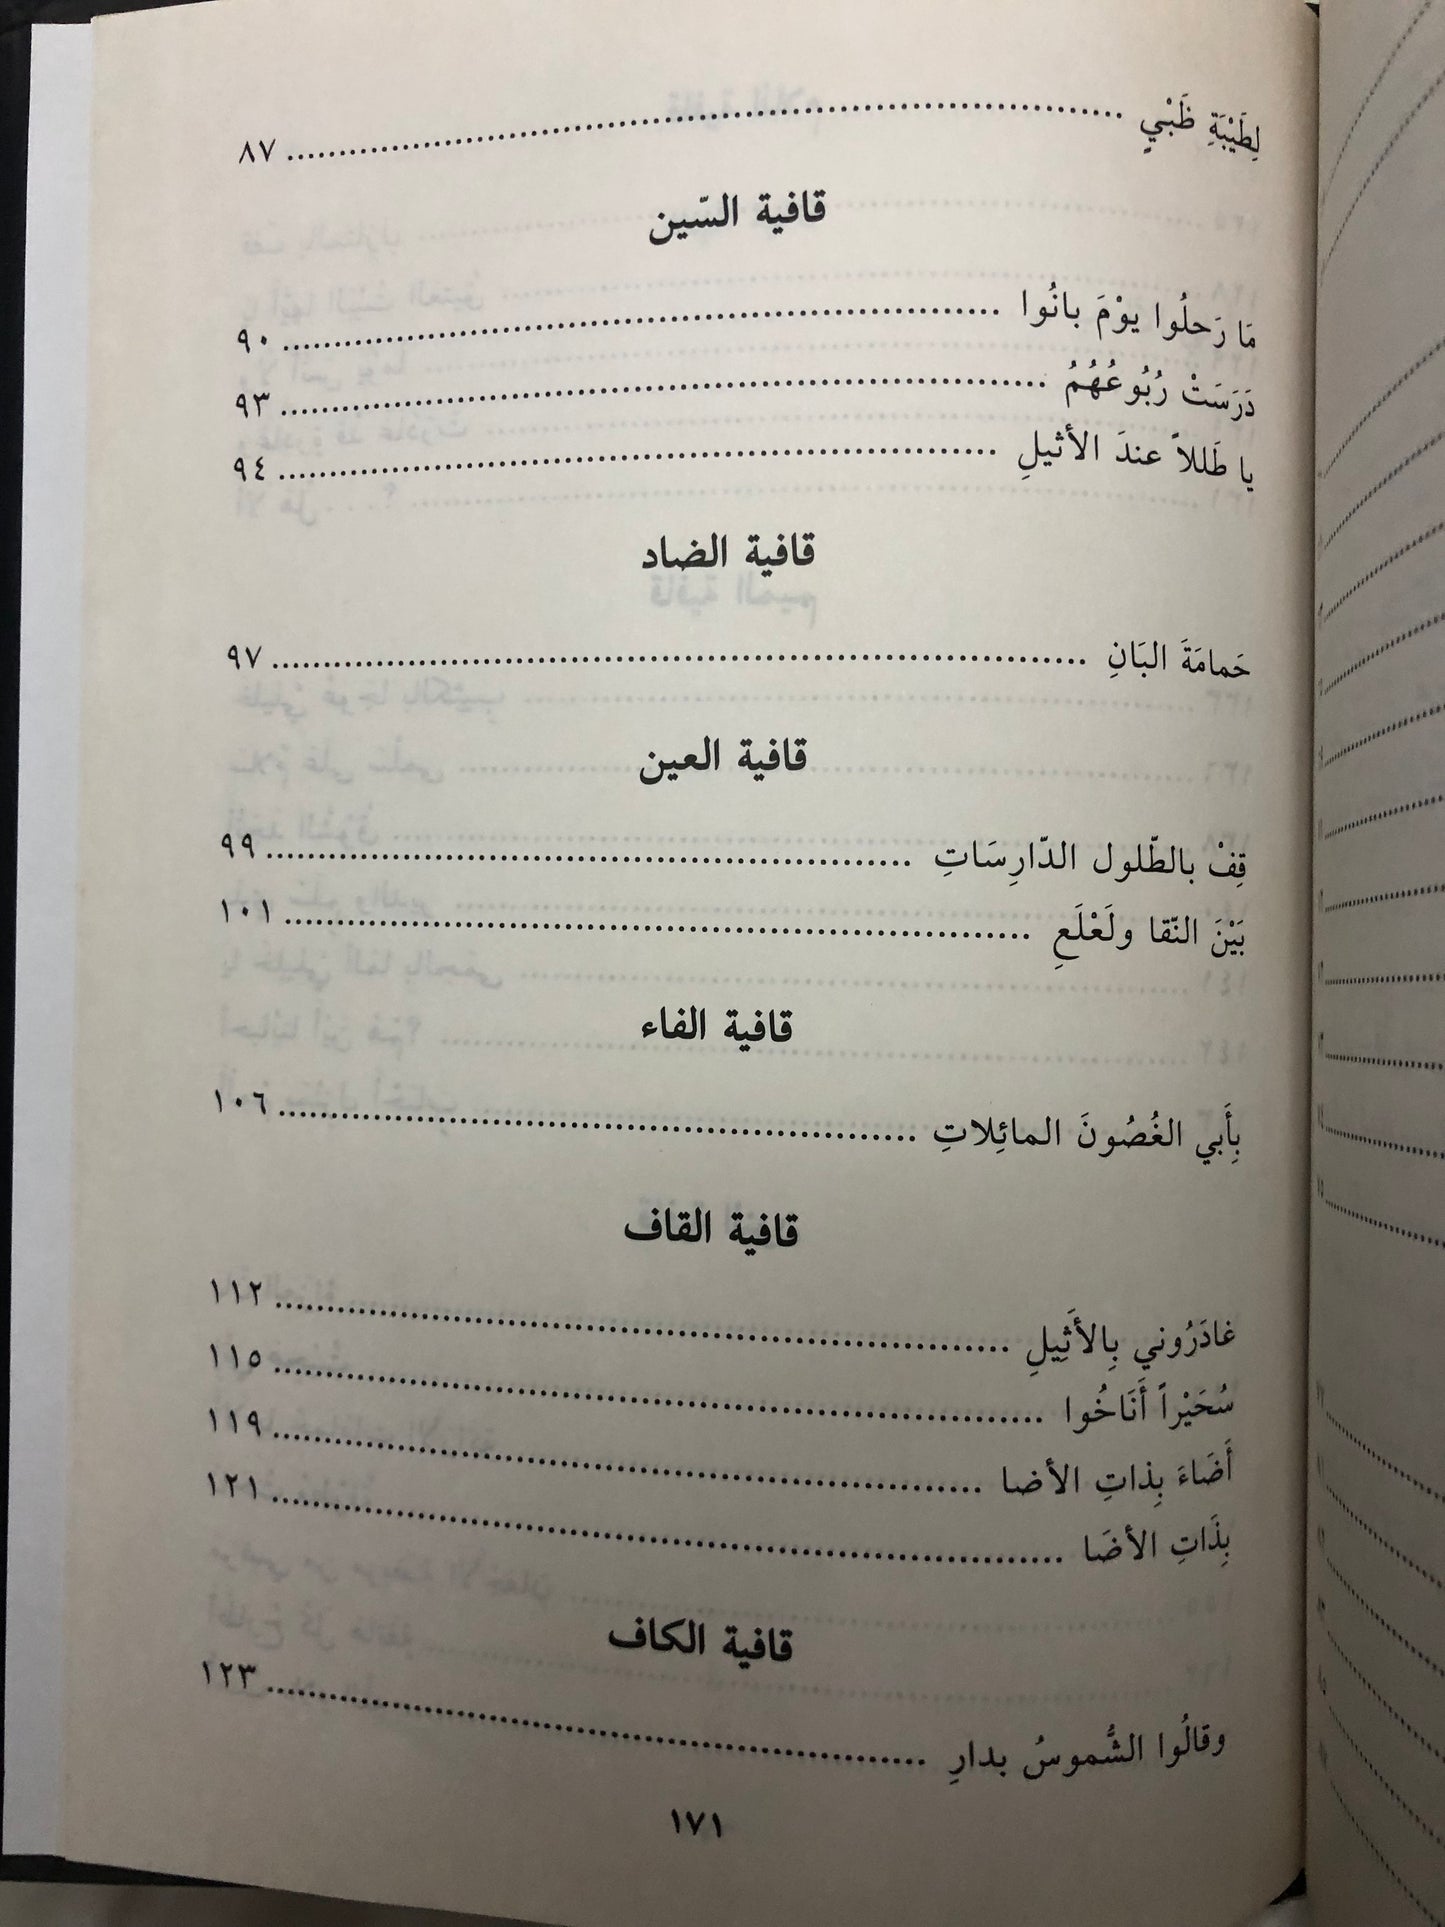 لِطَيْبَةِ ظَبْيٍ ........ ٨٧
قافية السّين
مَا رَحلُوا يوْمَ بانُوا ........ ٩٠
دَرَسَتْ رُبُوعُهُمُ ........ ٩٣
يا طَللاً عندَ الأثيلِ ........ ٩٤
قافية الضاد
حَمامَةَ البَانِ ........ ٩٧
قافية العين
قِفْ بالطّلول الدّارِسَاتِ ........ ٩٩
بَيْنَ النّقا ولَعْلَعِ ........ ١٠١
قافية الفاء
بِأَبي الغُصُونَ المائِلاتِ ........ ١٠٦
قافية القاف
غادَرُوني بِالأَثِيلِ ........ ١١٢
سُحَيْراً أَنَاخُوا ........ ١١٥
أَضَاءَ بِذاتِ الأضا ........ ١١٩
بِذَاتِ الأضَا ........ ١٢١
قافية الكاف
وقالُوا الشُّموسُ بدارِ ........ ١٢٣
١٧١